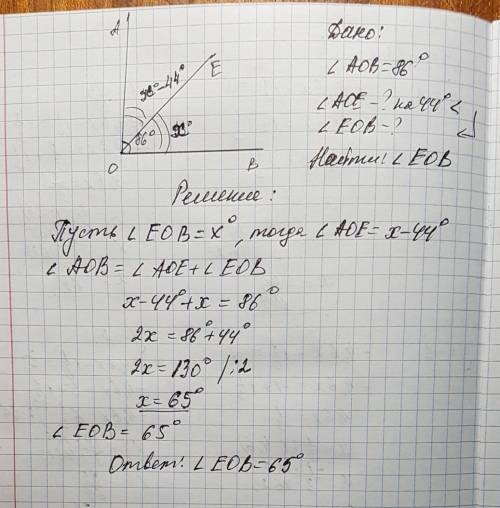 A
E
x°-44°
86°
x°
O
B
Дано:
∠AOB=86°
∠AOE-? на 44° <
∠EOB-?
Найти: ∠EOB
Решение:
Пусть ∠EOB=x°, тогда ∠AOE=x-44°
∠AOB=∠AOE+∠EOB
x-44°+x=86°
2x=86°+44°
2x=130° /:2
x=65°
∠EOB=65°
Ответ: ∠EOB=65°